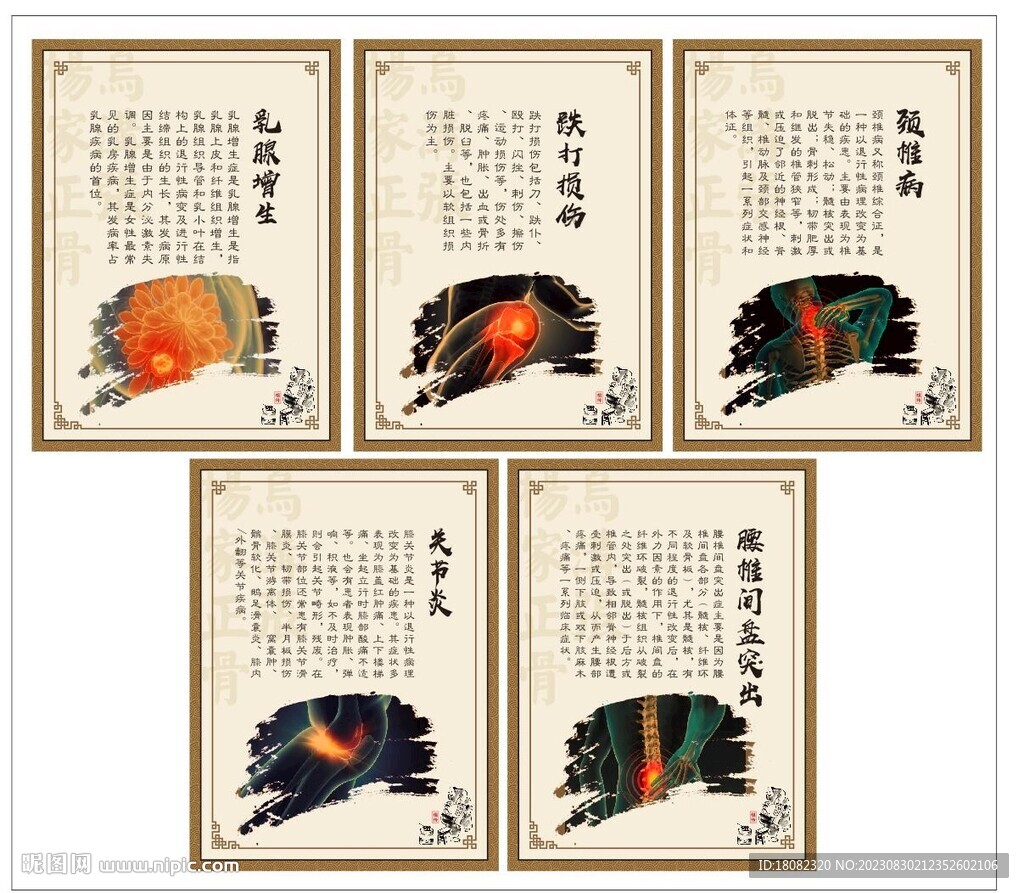 乳腺增生
乳腺增生症是乳腺增生是指
乳腺上皮和纤维组织增生，
乳腺组织导管和乳小叶在结
构上的退行性病变及进行性
结缔组织的生长，其发病原
因主要是由于内分泌激素失
调。乳腺增生症是女性最常
见的乳房疾病，其发病率占
乳腺疾病的首位。
烏
楊家正骨
跌打损伤
跌打损伤包括刀、跌仆、
殴打、闪挫、刺伤、擦伤
、运动损伤等，伤处多有
疼痛、肿胀、出血或骨折
、脱臼等，也包括一些内
脏损伤。主要以软组织损
伤为主。
烏
楊家正骨
颈椎病
颈椎病又称颈椎综合征，是
一种以退行性病理改变为基
础的疾患。主要由表现为椎
节失稳、松动；髓核突出或
脱出；骨刺形成；韧带肥厚
和继发的椎管狭窄等，刺激
或压迫了邻近的神经根、脊
髓、椎动脉及颈部交感神经
等组织，引起一系列症状和
体征。
烏
楊家正骨
关节炎
膝关节炎是一种以退行性病理
改变为基础的疾患。其症状多
表现为膝盖红肿痛、上下楼梯
痛、坐起立行时膝部酸痛不适
等。也会有患者表现肿胀、弹
响、积液等，如不及时治疗，
则会引起关节畸形，残废。在
膝关节部位还常患有膝关节滑
膜炎、韧带损伤、半月板损伤
、膝关节游离体、腘窝囊肿、
髌骨软化、鹅足滑囊炎、膝内
/外翻等关节疾病。
烏
楊家正骨
腰椎间盘突出
腰椎间盘突出症主要是因为腰
椎间盘各部分（髓核、纤维环
及软骨板），尤其是髓核，有
不同程度的退行性改变后，在
外力因素的作用下，椎间盘的
纤维环破裂，髓核组织从破裂
之处突出（或脱出）于后方或
椎管内，导致相邻脊神经根遭
受刺激或压迫，从而产生腰部
疼痛，一侧下肢或双下肢麻木
、疼痛等一系列临床症状。
烏
楊家正骨
昵图网 www.nipic.com
ID:18082320 NO:20230830212352602106